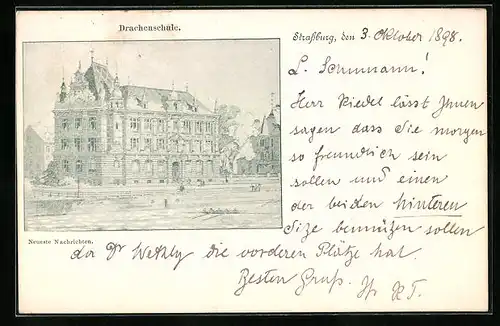 Drachenschule.
Straßburg, den 3. Oktober 1898.
L. Schumann!
Herr Riedel lässt Ihnen
sagen dass Sie morgen
so freundlich sein
sollen und einen
der beiden hinteren
Size benützen sollen
Neueste Nachrichten.
da Dr die vorderen Plätze hat.
Besten Gruß.